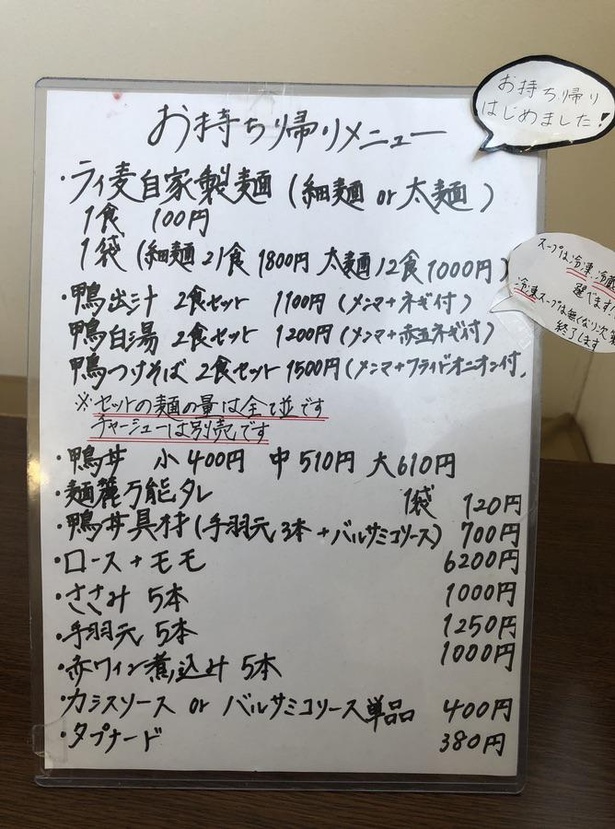 お持ち帰りメニュー
お持ち帰り
はじめました!
・ライ麦自家製麺 (細麺 or 太麺)
1食 100円
1袋 (細麺21食 1800円 太麺12食1000円)
スープは冷凍、冷蔵
選べます
冷凍スープは無くなり次第
終了します
・鴨出汁 2食セット 1100円 (メンマ+ネギ付)
鴨白湯 2食セット 1200円 (メンマ+赤玉ネギ付)
鴨つけそば 2食セット 1500円 (メンマ+フライドオニオン付)
※セットの麺の量は全て並です
チャーシューは別売です
・鴨丼 小400円 中510円 大610円
・麺麓万能タレ 1袋 120円
・鴨丼具材 (手羽元3本+バルサミコソース) 700円
・ロース+モモ 6200円
・ささみ 5本 1000円
・手羽元 5本 1250円
・赤ワイン煮込み 5本 1000円
・カシスソース or バルサミコソース単品 400円
・タプナード 380円